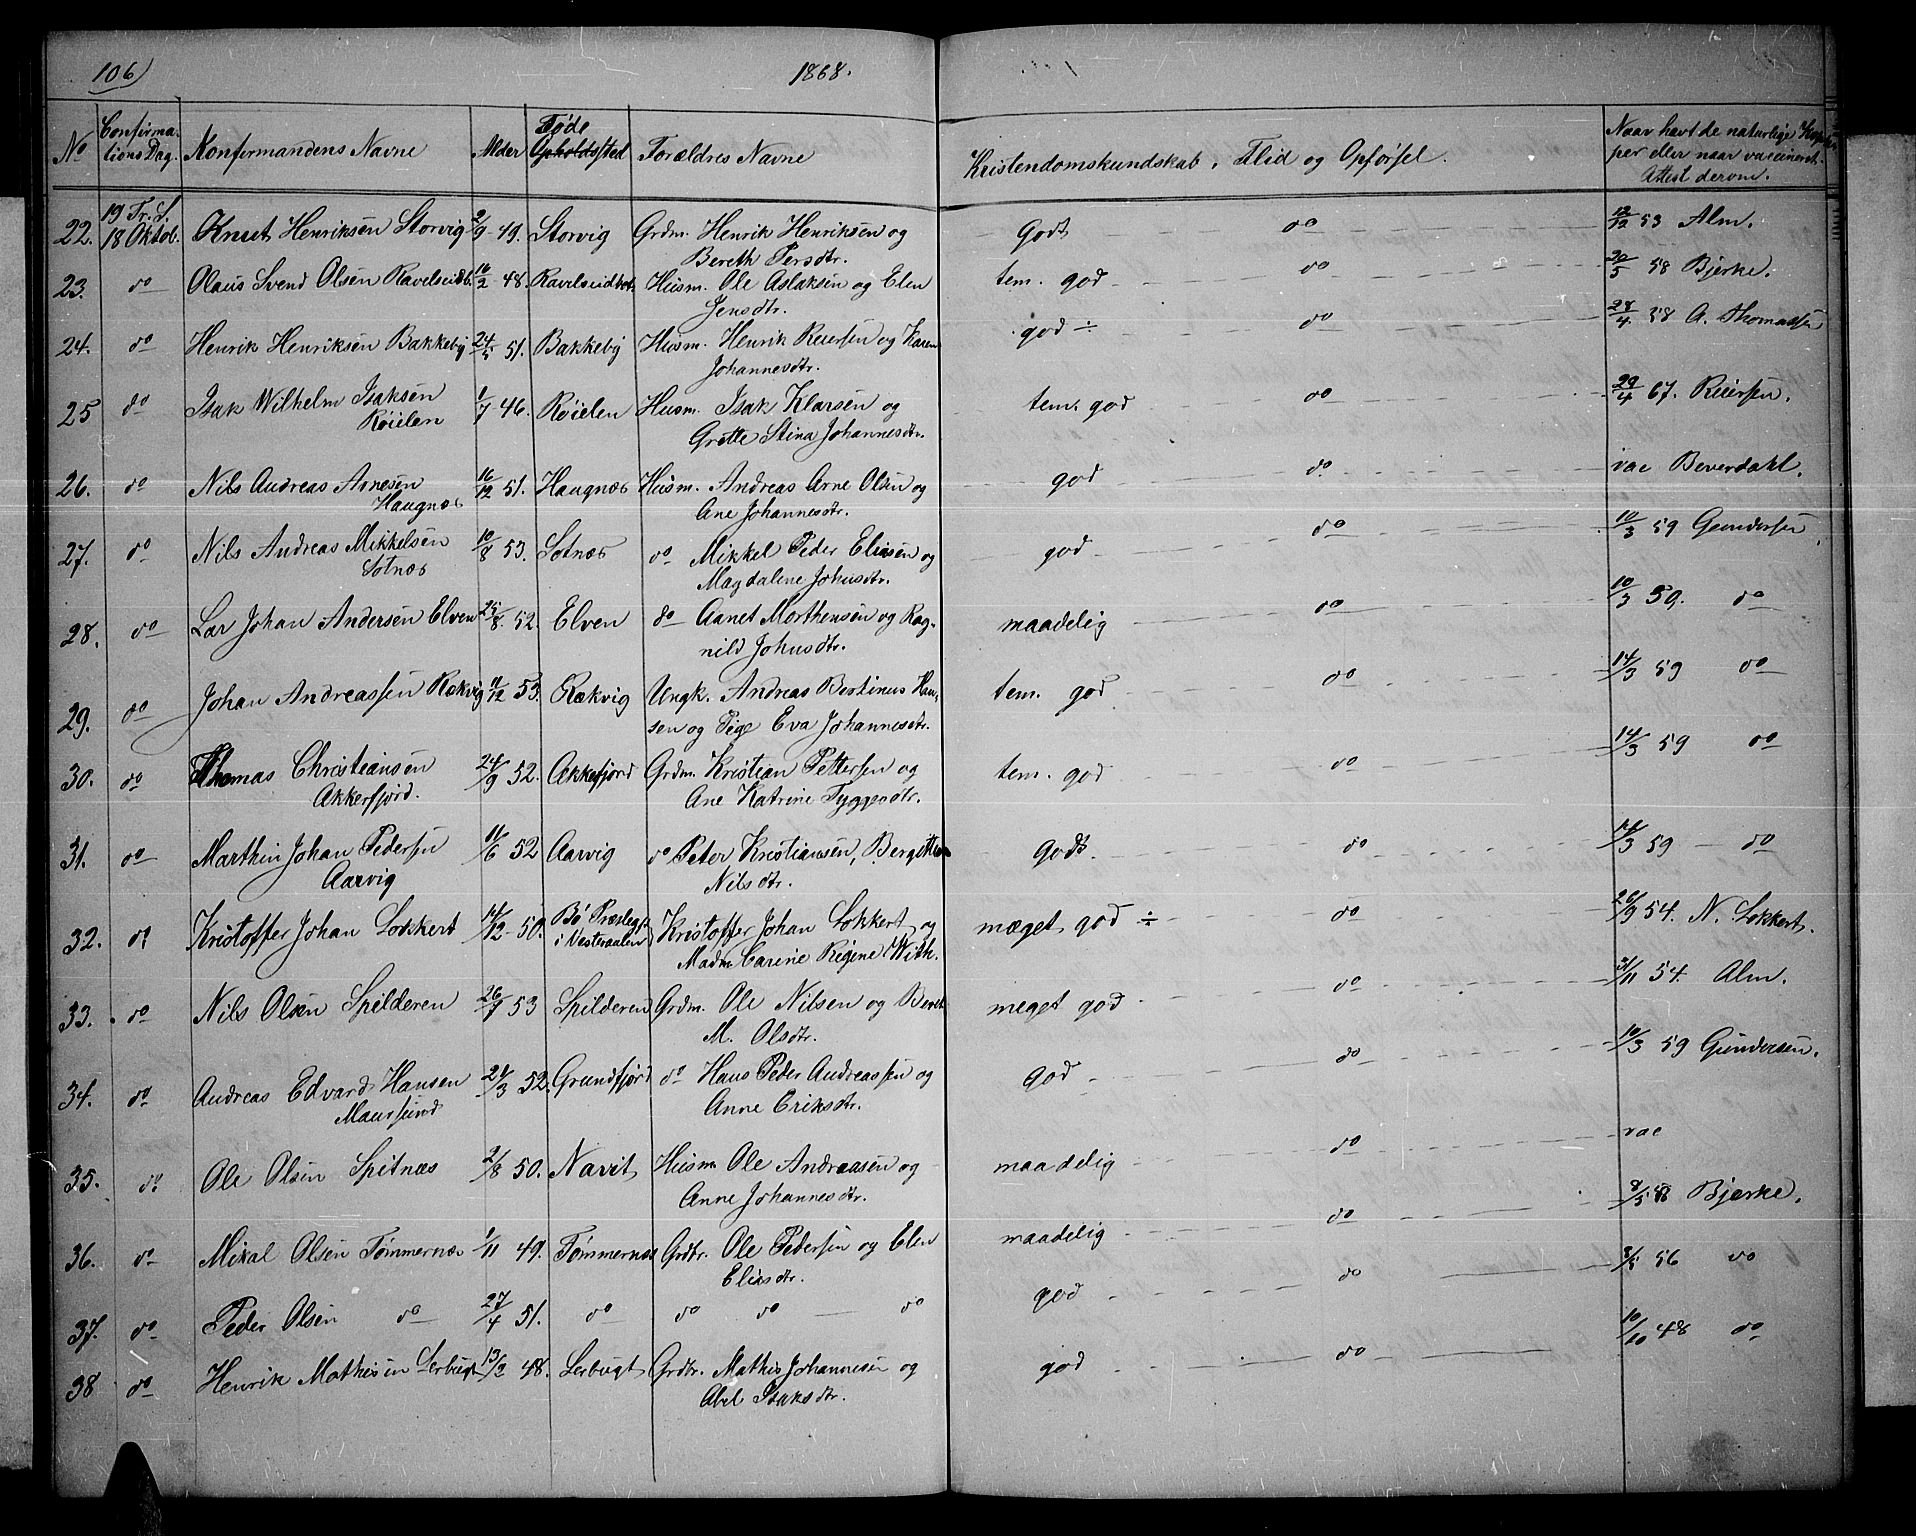 106) 1868.
No Confirmations Dag. Konfirmandens Navne Alder Føde Opholdssted Forældres Navne Kristendomskundskab, Flid og Opførsel. Naar havt de naturlige Kopper eller naar vaccineret. Attest derom.
22. 19 Tr. S. 18 Oktob. Knut Henriksen Storvig 2/9 49. Storvig Grdm. Henrik Henriksen og Godt do 13/12 53 Alm.
Bereth Persdtr.
23. do Olaus Svend Olsen Ravelseidb. 16/2 48. Ravelseidbot. Husm. Ole Aslaksen og Elen tem. god do 20/5 58 Bjerke.
Jensdtr.
24. do Henrik Henriksen Bakkeby 24/5 51. Bakkeby Husm. Henrik Reiersen og Karen god ÷ do 28/4 58 A. Thomassen
Johannesdtr.
25 do Isak Wilhelm Isaksen 1/7 46. Røielen Husm. Isak Klarsen og tem. god do 29/4 67. Reiersen.
Røielen Grette Stina Johannesdtr.
26. do Nils Andreas Arnesen 16/12 51. Haugnæs Husm. Andreas Arne Olsen og god do vac Beverdahl.
Haugnæs Ane Johannesdtr.
27. do Nils Andreas Mikkelsen 10/8 53. Sotnæs do Mikkel Peder Eliasen og god do 10/3 59 Gundersen
Sotnæs Magdalene Johusdtr.
28. do Lar Johan Andersen Elven 25/8 52. Elven do Aanet Morthensen og Rag- maadelig do 10/3 59. do
nild Johusdtr.
29. do Johan Andreassen Rækvig 11/12 53. Rækvig Ungk. Andreas Bertinus Han- tem. god do 14/3 59 do
sen og Pige Eva Johannesdtr.
30. do Thomas Christiansen 24/9 52. Akkefjord Grdm. Kristian Pettersen og tem. god do 14/3 59 do
Akkerfjord. Ane Katrine Tyggesdtr.
31. do Marthin Johan Pedersen 11/6 52 Aarvig do Peter Kristiansen, Bergitte godt. do 14/3 59 do
Aarvig Nilsdtr.
32. do Kristoffer Johan Lokkert 14/12 50. Bø Præstegj. i Vesteraalen Kristoffer Johan Lokkert og mæget god ÷ do 26/9 54. N. Lokkert.
Madm. Carine Regine With.
33. do Nils Olsen Spilderen 26/7 53 Spilderen Grdm. Ole Nilsen og Beret meget god do 3/11 54. Alm.
M. Olsdtr.
34. do Andreas Edvard Hansen 24/3 52. Grundfjord do Hans Peder Andreassen og god do 10/3 59 Gundersen.
Maursund Anne Eriksdtr.
35. do Ole Olsen Spitnæs 2/8 50. Navit Husm Ole Andreasen og maadelig do vac
Anne Johannesdtr.
36. do Mikal Olsen Tømmernæs 1/11 49. Tømmernæs Grdbr. Ole Pedersen og Elen maadelig do 8/5 48 Bjerke.
Eliasdtr.
37. do Peder Olsen do 27/4 51. do do do do god do 3/5 56 do
38 do Henrik Mathisen Lerbugt 13/2 48. Lerbugt Grdbr. Mathis Johannesen og god do 10/10 48 do
Abel Isaksdtr.